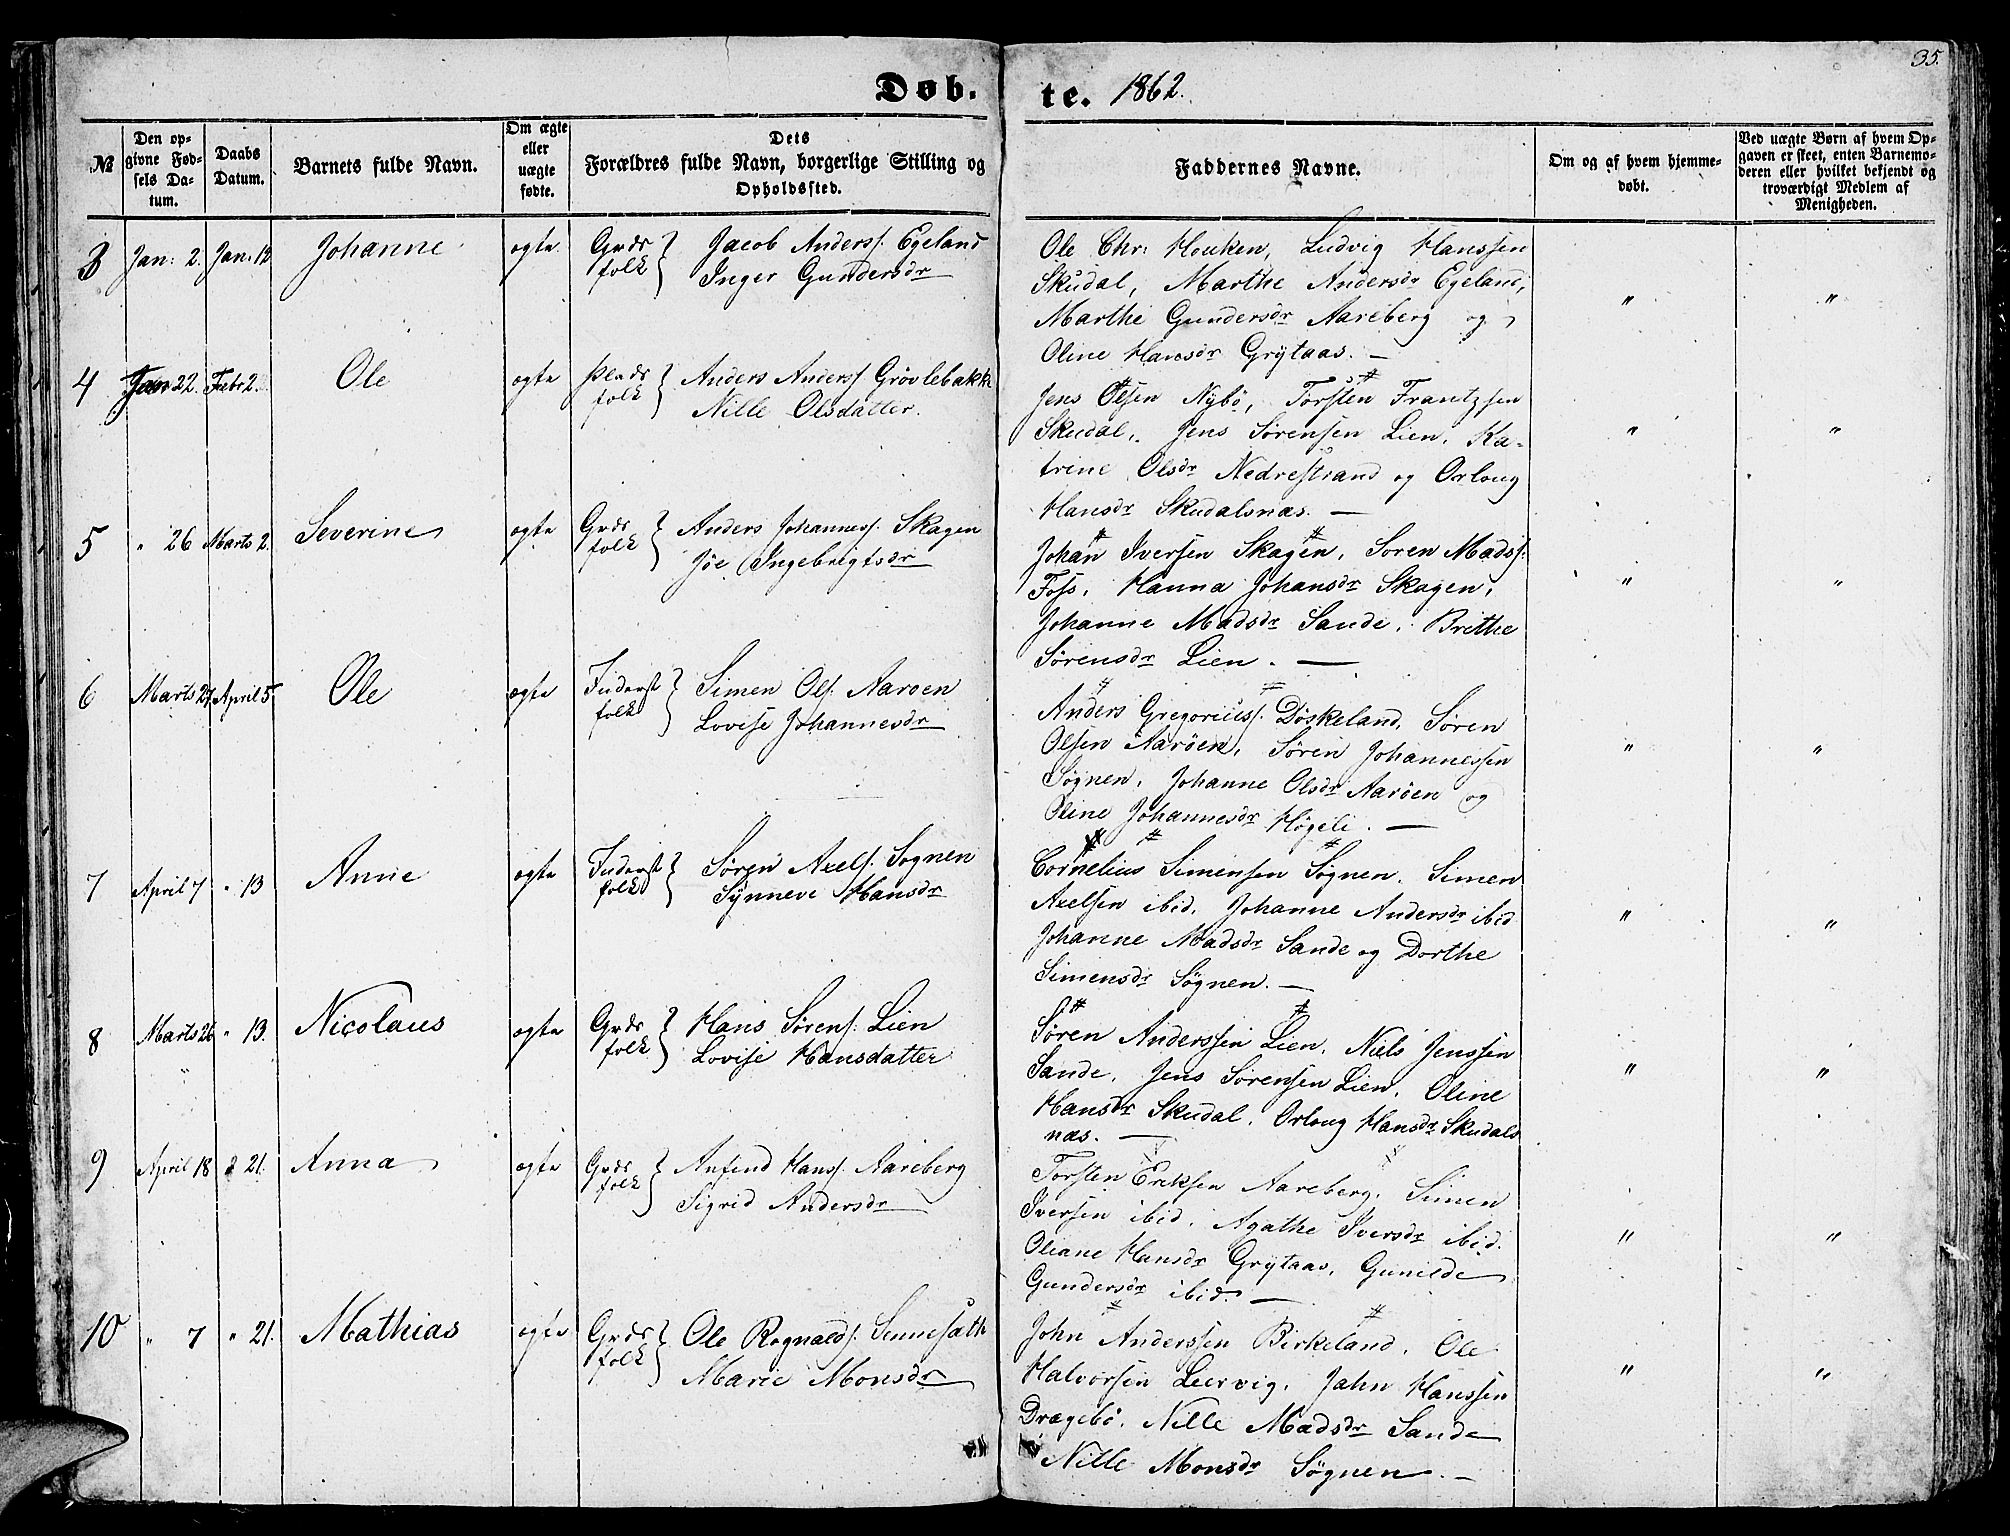 35.
Døb. te. 1862.
№
Den opgivne Fødsels Datum.
Daabs Datum.
Barnets fulde Navn.
Om ægte eller uægte fødte.
Dets Forældres fulde Navn, borgerlige Stilling og Opholdssted.
Faddernes Navne.
Om og af hvem hjemmedøbt.
Ved uægte Børn af hvem Opgaven er skeet, enten Barnemoderen eller hvilket bekjendt og troværdigt Medlem af Menigheden.
3 Jan: 2. Jan. 12 Johanne ægte Grds folk } Jacob Anderss. Egeland
Inger Gundersdr
Ole Chr: Houken, Ludvig Hanssen
Skudal, Marthe Andersdr Egeland,
Marthe Gundersdr Aareberg og
Oline Hansdr Grytaas. —
" "
4 Jan 22. Febr 2. Ole ægte Plads folk } Anders Anderss. Grøvlebakke
Nille Olsdatter.
Jens Olsen Nybø, Torsten Frantzsen
Skudal, Jens Sørensen Lien, Ka-
trine Olsdr Nedrestrand og Orloug
Hansdr Skudalsnæs. —
" "
5 " 26 Marts 2. Severine ægte Grds folk } Anders Johanness. Skagen
Jöe Ingebrigtsdr
Johan Iversen Skagen, Søren Madss.
Foss, Hanna Johansdr Skagen,
Johanne Madsdr Sande, Brithe
Sørensdr Lien. —
" "
6 Marts 27. April 5. Ole ægte Inderst folk } Simen Ols. Aarøen
Lovise Johannesdr
Anders Gregoriuss. Døskeland, Søren
Olsen Aarøen, Søren Johannessen
Søgnen, Johanne Olsdr Aarøen og
Oline Johannesdr Høgeli. —
" "
7 April 7 " 13 Anne ægte Inderst folk } Søren Axels. Sognen
Synneve Hansdr
Cornelius Simensen Søgnen, Simen
Axelsen ibid, Johanne Andersdr ibid
Johanne Madsdr Sande og Dorthe
Simensdr Søgnen. —
" "
8 Marts 26 " 13. Nicolaus ægte Grds folk } Hans Sørens. Lien
Lovise Hansdatter
Søren Anderssen Lien, Niels Jenssen
Sande, Jens Sørensen Lien, Oline
Hansdr Skudal, Orloug Hansdr Skudals
næs. —
" "
9 April 18 " 21. Anna ægte Grds folk } Anfind Hanss. Aareberg
Sigrid Andersdr
Torsten Eriksen Aareberg, Simen
Iversen ibid, Agathe Iversdr ibid.
Oliane Hansdr Grytaas, Gunilde
Gundersdr ibid. —
" "
10 " 7 " 21. Mathias ægte Grds folk } Ole Rognalds. Sennesæth
Marie Monsdr
John Anderssen Birkeland, Ole
Halvorsen Leervig, Jahn Hanssen
Drægebø, Nille Madsdr Sande
Nille Monsdr Søgnen. —
" "